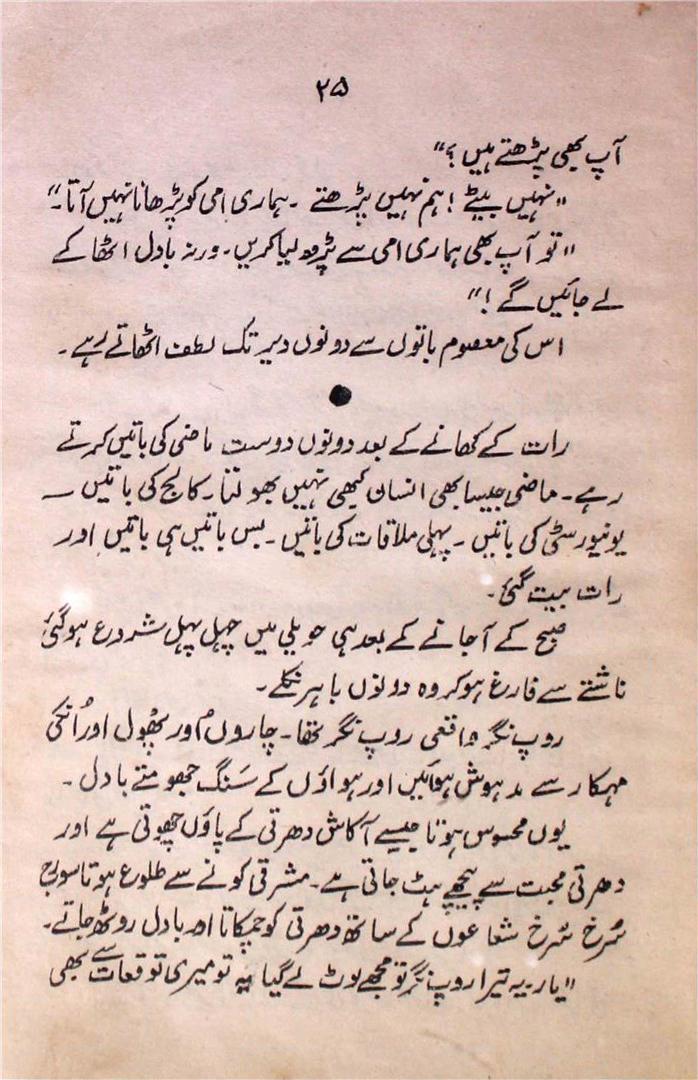 ۲۵
آپ بھی پڑھتے ہیں ؟"
"نہیں بیٹے ! ہم نہیں پڑھتے ۔ ہماری امی کو پڑھانا نہیں آتا۔"
"تو آپ بھی ہماری امی سے پڑھ لیا کریں۔ ورنہ بادل اٹھا کے
لے جائیں گے !"
اس کی معصوم باتوں سے دونوں دیر تک لطف اٹھاتے رہے۔
●
رات کے کھانے کے بعد دونوں دوست ماضی کی باتیں کرتے
رہے۔ ماضی جیسا بھی انسان کبھی نہیں بھولتا۔ کالج کی باتیں ـــ
یونیورسٹی کی باتیں ۔ پہلی ملاقات کی باتیں ۔ بس باتیں ہی باتیں اور
رات بیت گئی۔
صبح کے آجانے کے بعد ہی حویلی میں چہل پہل شروع ہوگئی
ناشتے سے فارغ ہو کر وہ دونوں باہر نکلے۔
روپ نگر واقعی روپ نگر تھا۔ چاروں اور پھول اور اُنکی
مہکار سے مدہوش ہوائیں اور ہواؤں کے سَنگ جھومتے بادل ۔
یوں محسوس ہوتا جیسے آکاش دھرتی کے پاؤں چھوتی ہے اور
دھرتی محبت سے پیچھے ہٹ جاتی ہے۔ مشرقی کونے سے طلوع ہوتا سورج
سُرخ سُرخ شعاعوں کے ساتھ دھرتی کو چمکاتا اور بادل روٹھ جاتے۔
"یار۔ یہ تیرا روپ نگر تو مجھے لوٹ لے گیا یہ تو میری توقعات سے بھی